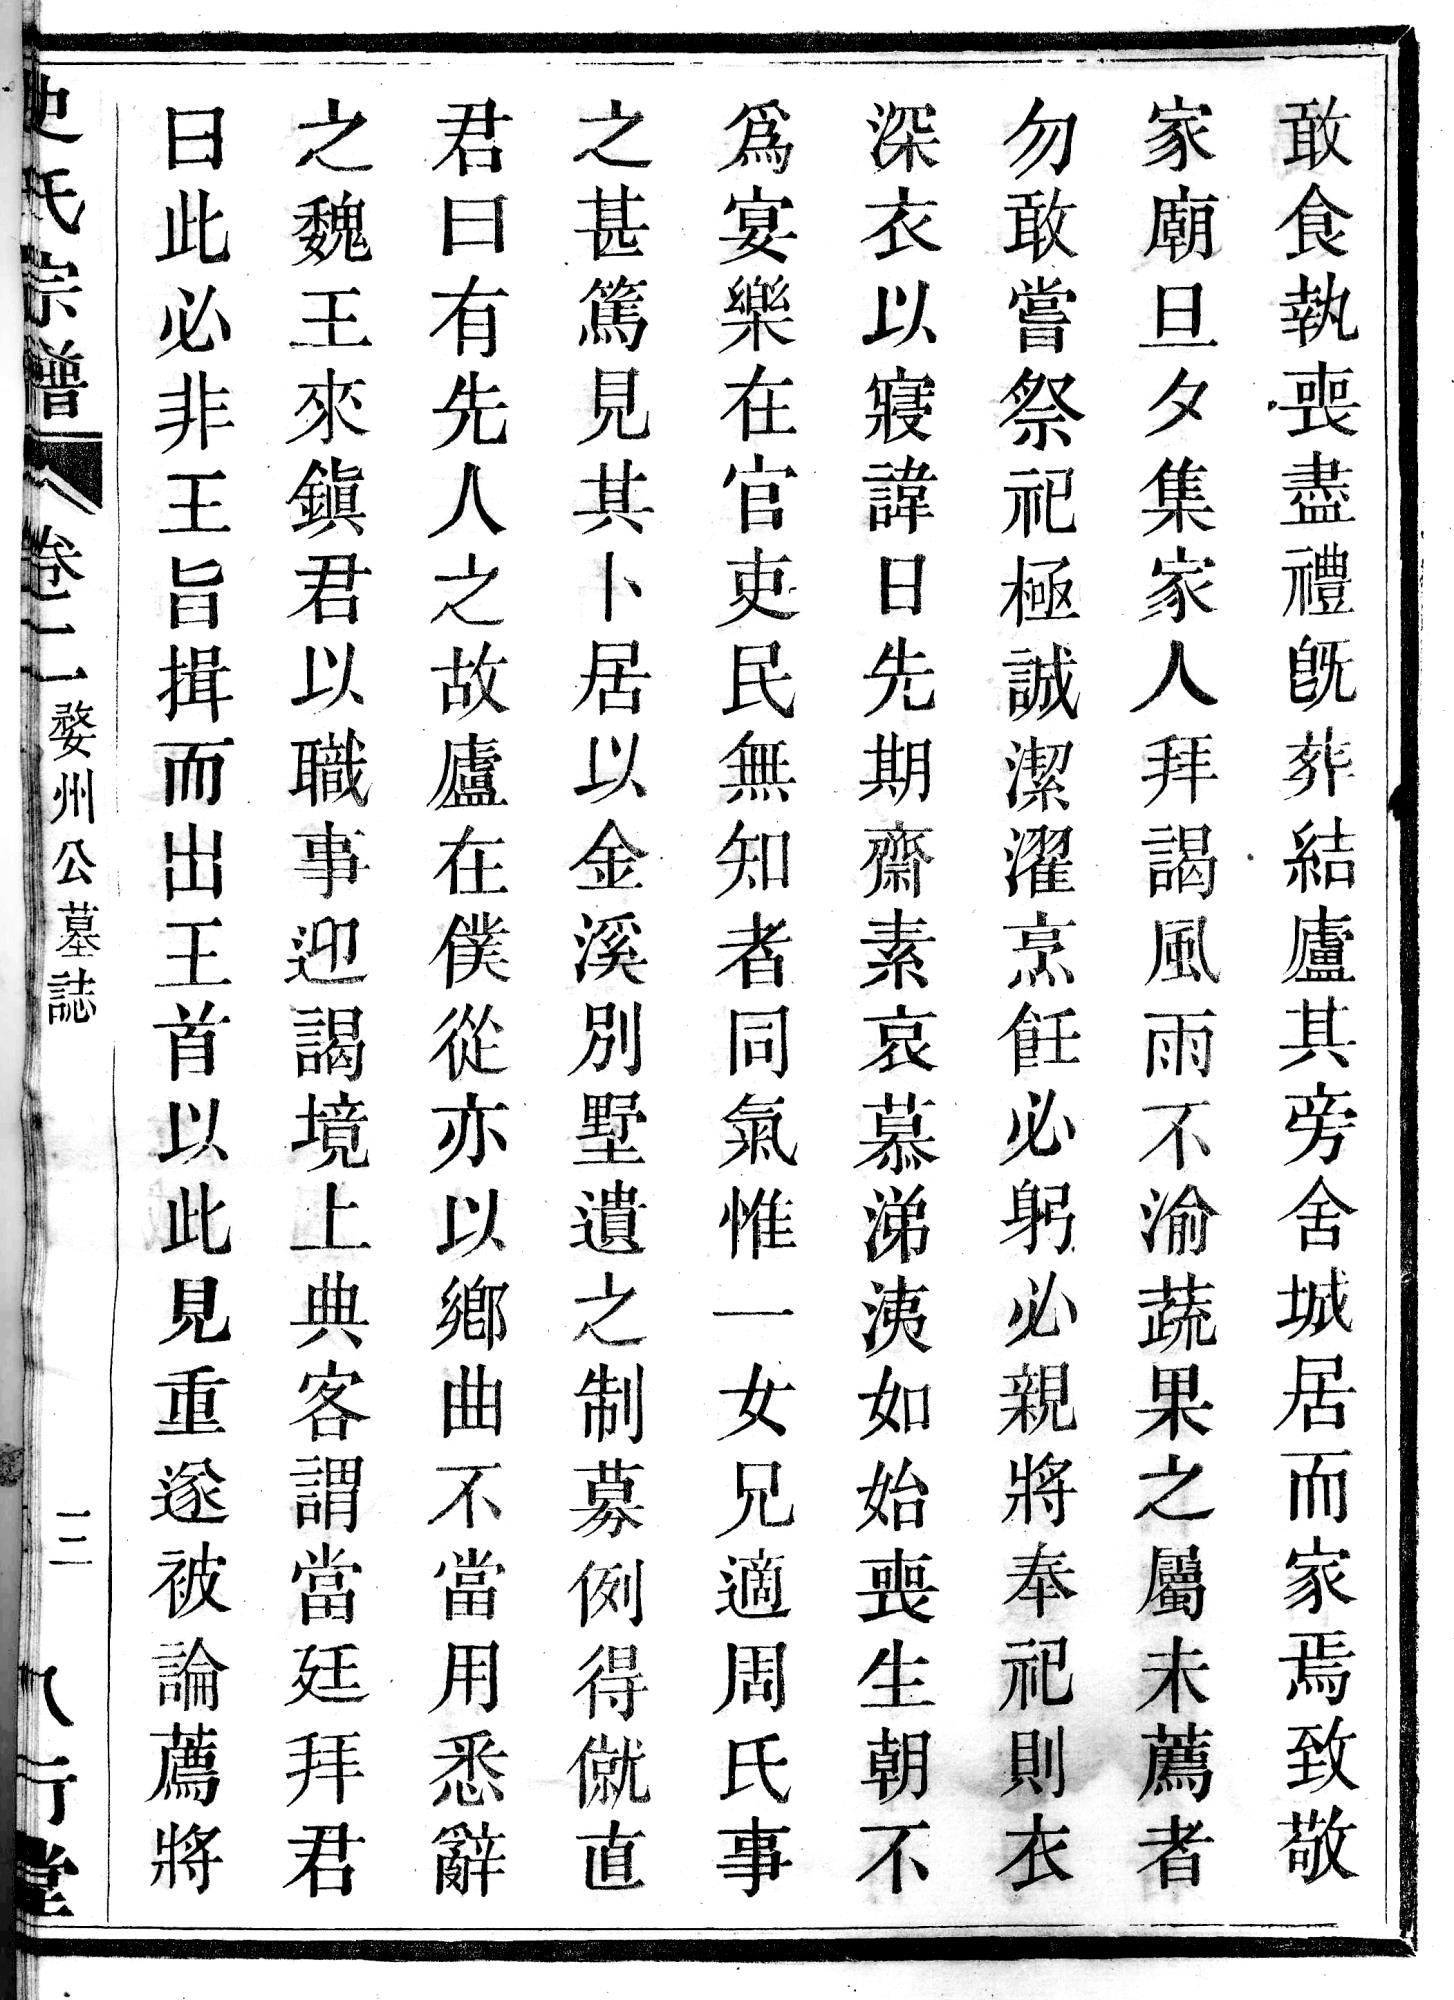 敢食執喪盡禮旣葬結廬其旁舍城居而家焉致敬
家廟旦夕集家人拜謁風雨不渝蔬果之屬未薦者
勿敢嘗祭祀極誠潔濯烹飪必躬必親將奉祀則衣
深衣以寢諱日先期齋素哀慕涕洟如始喪生朝不
爲宴樂在官吏民無知者同氣惟一女兄適周氏事
之甚篤見其卜居以金溪別墅遺之制募例得僦直
君曰有先人之故廬在僕從亦以鄉曲不當用悉辭
之魏王來鎭君以職事迎謁境上典客謂當廷拜君
曰此必非王旨揖而出王首以此見重遂被論薦將
史氏宗譜 卷二 婺州公墓誌 三 八行堂